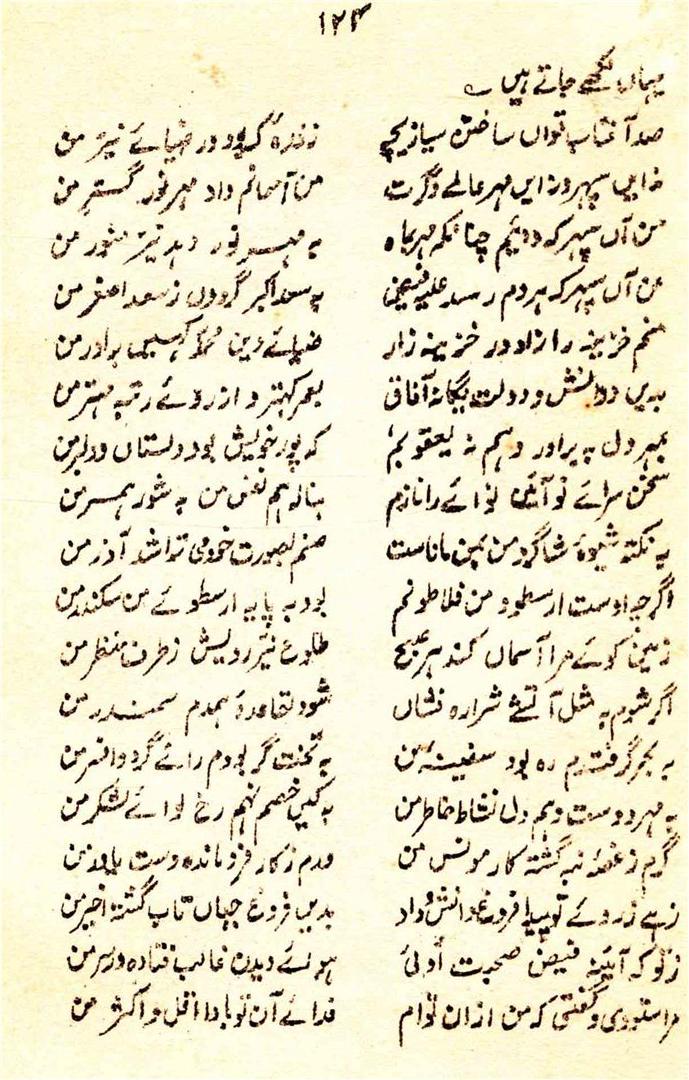 ۱۲۴
یہاں لکھے جاتے ہیں ؎
صد آفتاب تواں ساختن سیازیچہ ز ذرۂ کہ بود در ضیائے نیّر من
نہ ایں سپہر و نہ ایں مہر عالمے دگرست من آسمانم و او مہر نور گستر من
من آں سپہر کہ دہم چنانکہ مہر بماہ بہ مہر نور دہد نیّر منور من
من آں سپہر کہ ہر دم رسد علیہ فیضی بہ سعد اکبر گردوں ز سعد اصغر من
منم خزینۂ راز و در خزینۂ راز ضیائے دین محمد کہیں برادر من
بدیں دانش و دولت یگانۂ آفاق بعمر کہتر و از روئے رتبہ مہتر من
بمہر دل بہ برادر دہم نہ یعقوبم کہ پور خویش بود دلستان و دلبر من
سخن سرائے نو آئیں نوائے را نازم بنالہ ہم نفس من بہ شور ہمسر من
بہ نکتہ شیوۂ شاگرد من بمن ماناست صنم بصورت خود می تراشد آذر من
اگرچہ اوست ارسطو و من فلاطونم بود بہ پایہ ارسطوئے من سکندر من
زمین کوئے مرا آسماں کند ہر صبح طلوع نیّر رویش ز طرف منظر من
اگر شوم بہ مثل آتشے شرارہ فشاں شود بقاعدۂ ہمدم سمندر من
بہ بحر گر فتدم رہ بود سفینۂ من بہ تخت گر بودم رائے گردد افسر من
بہ مہر دوست دہم دل نشاط خاطر من بہ کیں خصم نہم رخ لوائے لشکر من
گرم ز غصہ تبہ گشتہ کار مونس من ورم ز کار فرو ماندہ دست یاور من
زہے ز روئے تو پیدا فروغ دانش و داد بدیں فروغ جہاں تاب گشتہ اختر من
ز تو کہ آئینۂ فیض صحبت اوئی ہوائے دیدن غالب فتادہ در سر من
مرا ستودی و گفتی کہ من ازان توام فدائے آن تو بادا اقل و اکثر من